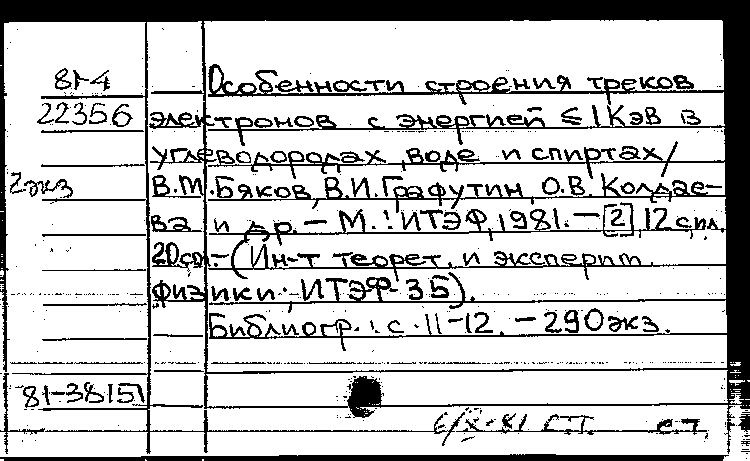 81-4
22356
2 экз
Особенности строения треков
электронов с энергией ≤ 1 Кэв в
углеводородах, воде и спиртах/
В.М. Бяков, В.И. Графутин, О.В. Колдае-
ва и др. – М.: ИТЭФ, 1981. – [2], 12 с. ил.
20 см. – (Ин-т теорет. и эксперим.
физики; ИТЭФ-35).
Библиогр.: с. 11-12. – 290 экз.
81-38151
6/X-81 С.Т.